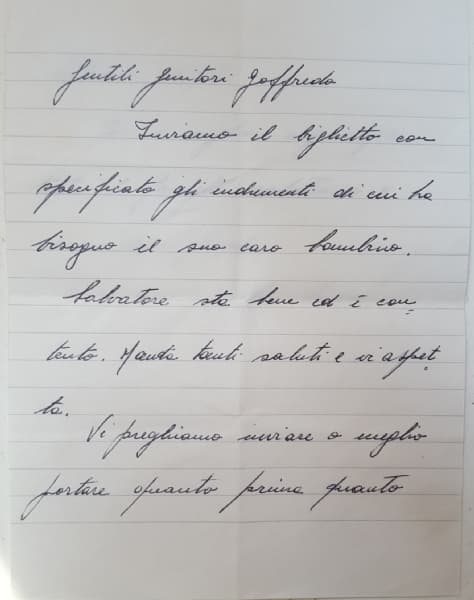 Gentili Genitori Goffredo
Inviamo il biglietto con
specificato gli indumenti di cui ha
bisogno il suo caro bambino.
Salvatore sta bene ed è con-
tento. Manda tanti saluti e vi aspet-
ta.
Vi preghiamo inviare o meglio
portare quanto prima quanto